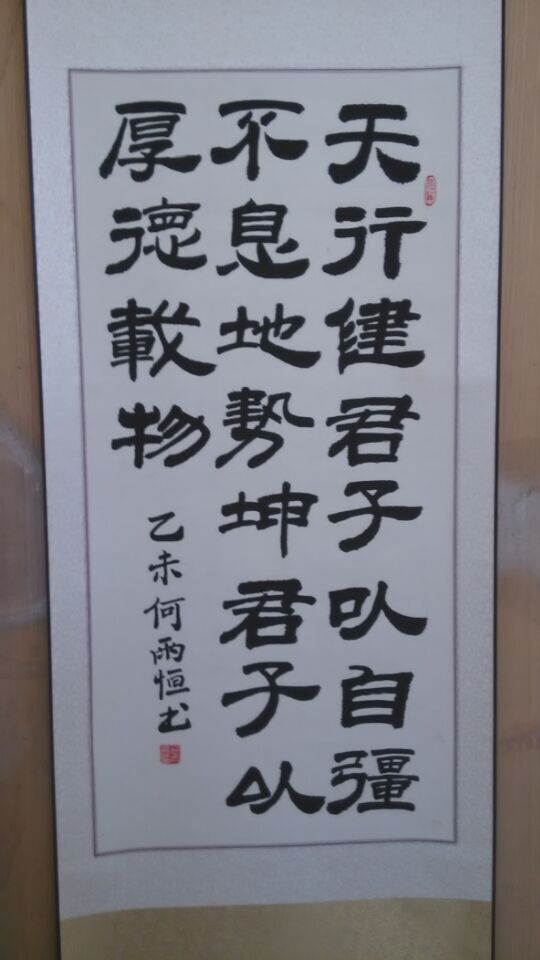 天行健君子以自彊
不息地勢坤君子以
厚德載物
乙未何雨恒书